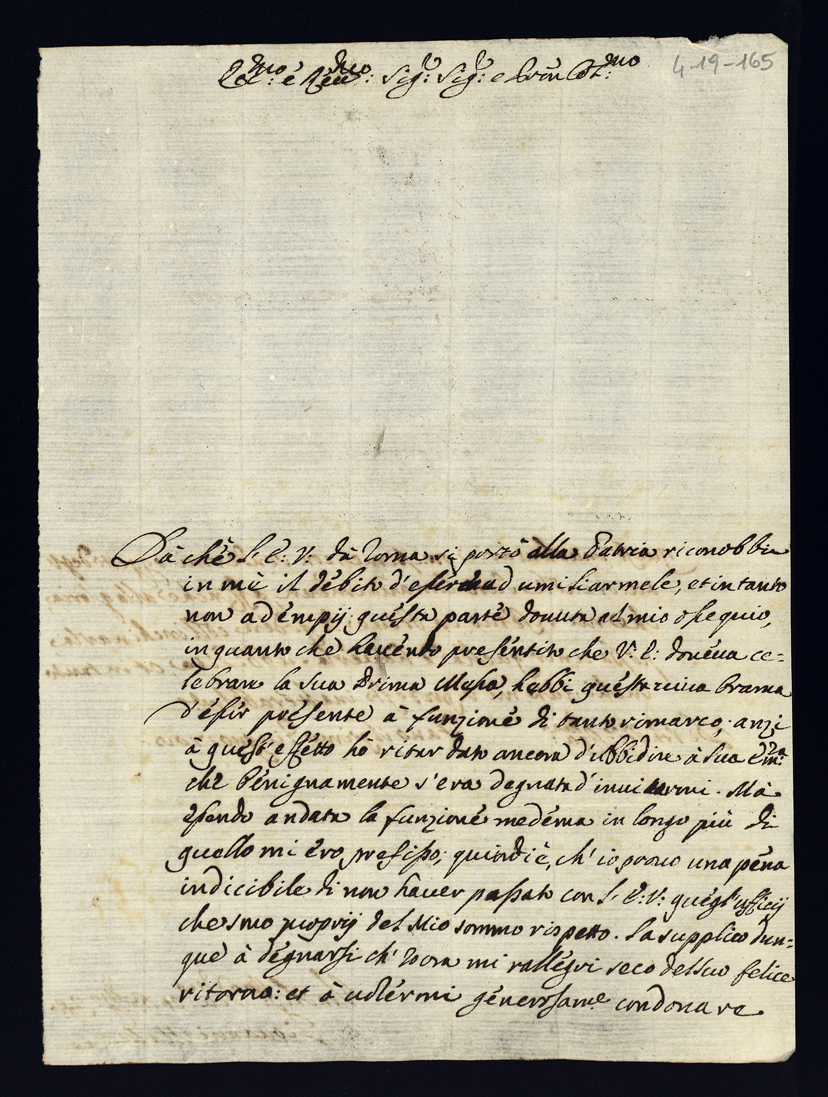 Ecc.mo e Rev.mo Sig.r Sig.r e Pron Col.mo
4-19-165
Dà chè l'E: V: dà Roma si portò alla Patria riconobbi
in mè il débito d'esser ad umiliarmele, et in tanto
non adémpij questa parte dovuta al mio osequio,
inquanto che havendo preséntito che V: E: doveva ce=
lebrare la sua Prima Messa, hebbi questa brama
d'ésser présente à funzione di tanto rimarco; anzi
à quest'effetto hò ritardato ancora d'ubbidire à Sua Em.za
che bénignamente s'era degnata d'invitarmi. Mà
éssendo andata la funzione medéma in longo più di
quello mi éro prefisso; quindi è, ch'io provo una péna
indicibile di non haver passato con l'E: V: quégl'ufficij
che sono proprij del Mio sommo rispetto. La supplico dun=
què à dégnarsi ch'io ora mi rallégri seco del suo felice
ritorno: et à volérmi génerosam.e condonare